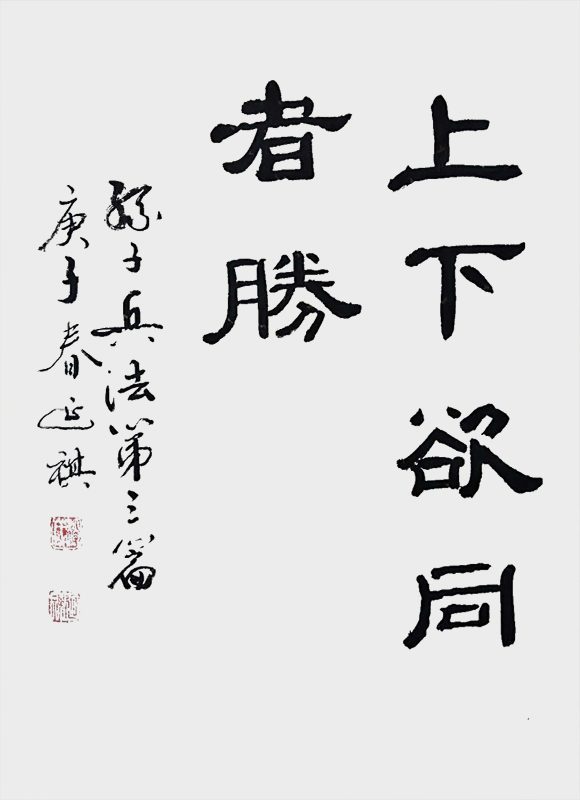 上下欲同
者勝
孫子兵法第三篇
庚子春延祺